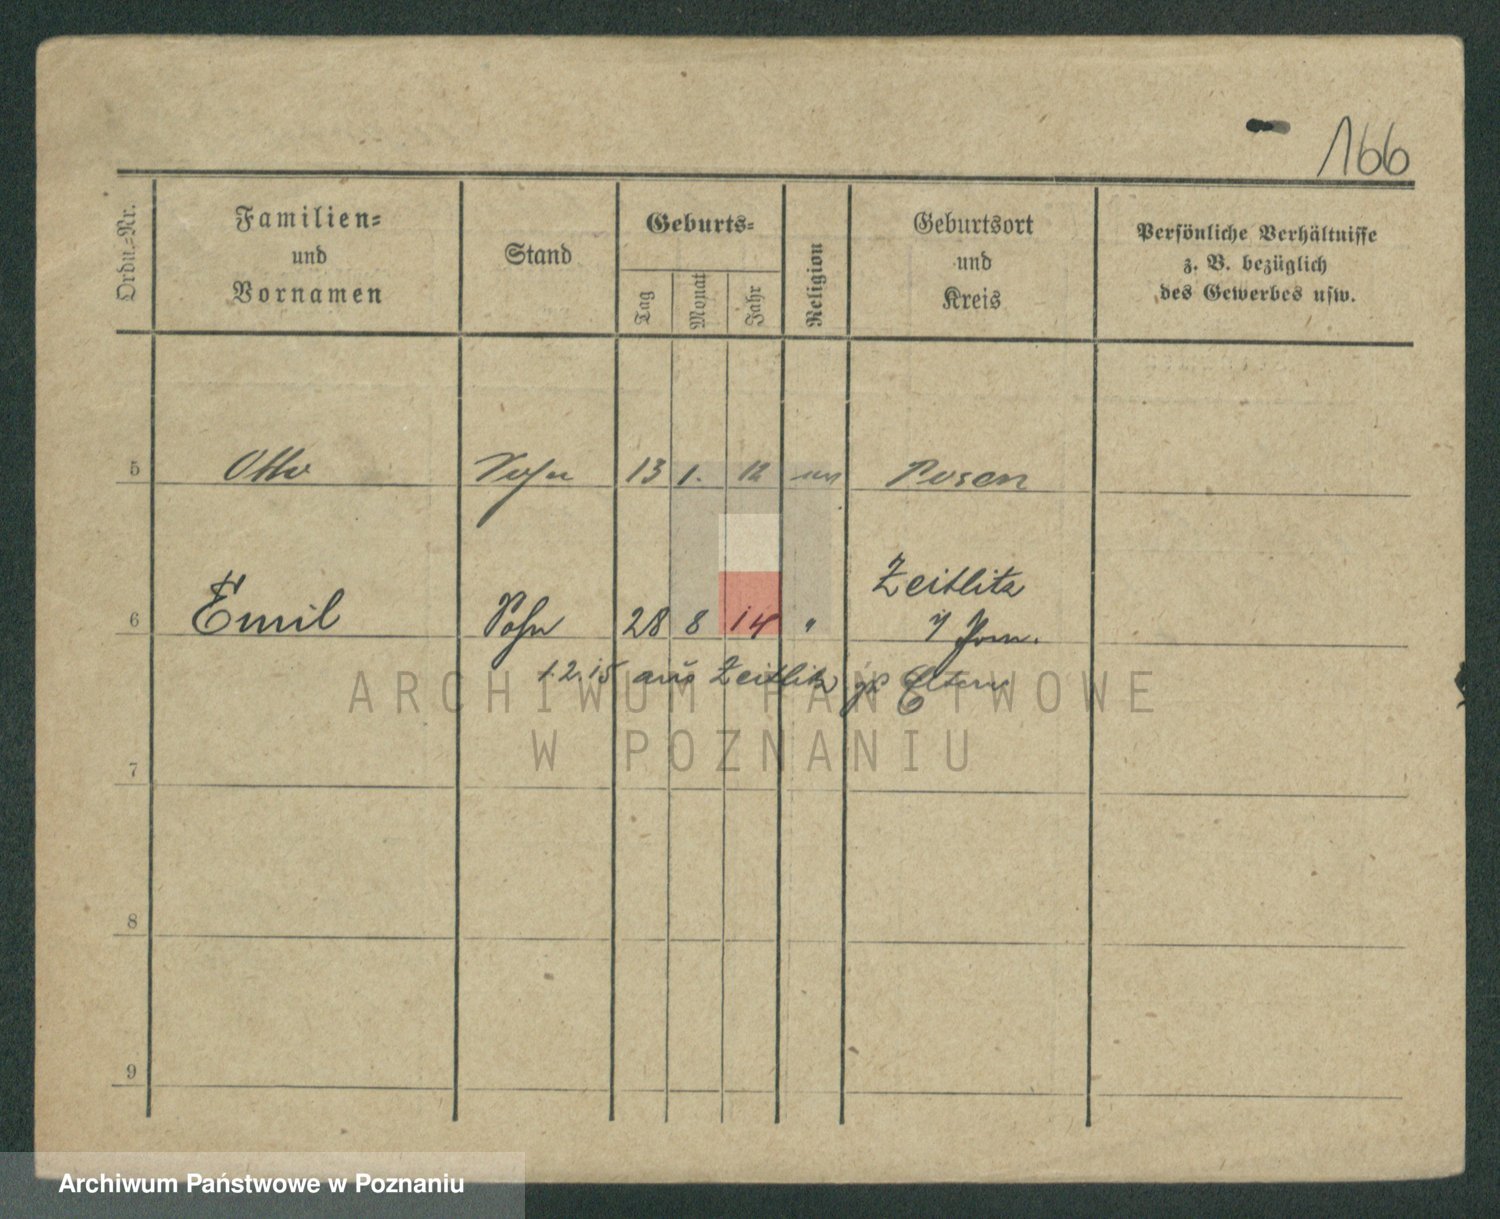 166
Ordn.-Nr.
Familien-
und
Vornamen
Stand
Geburts-
Tag
Monat
Jahr
Religion
Geburtsort
und
Kreis
Persönliche Verhältnisse
z. B. bezüglich
des Gewerbes usw.
5 Otto Sohn 13 1. 12 Posen
Zeitlitz
6 Emil Sohn 28 8 14 " i/ Pom.
1.2.15 aus Zeitlitz Eltern
ARCHIWUM PAŃSTWOWE
W POZNANIU
7
8
9
Archiwum Państwowe w Poznaniu